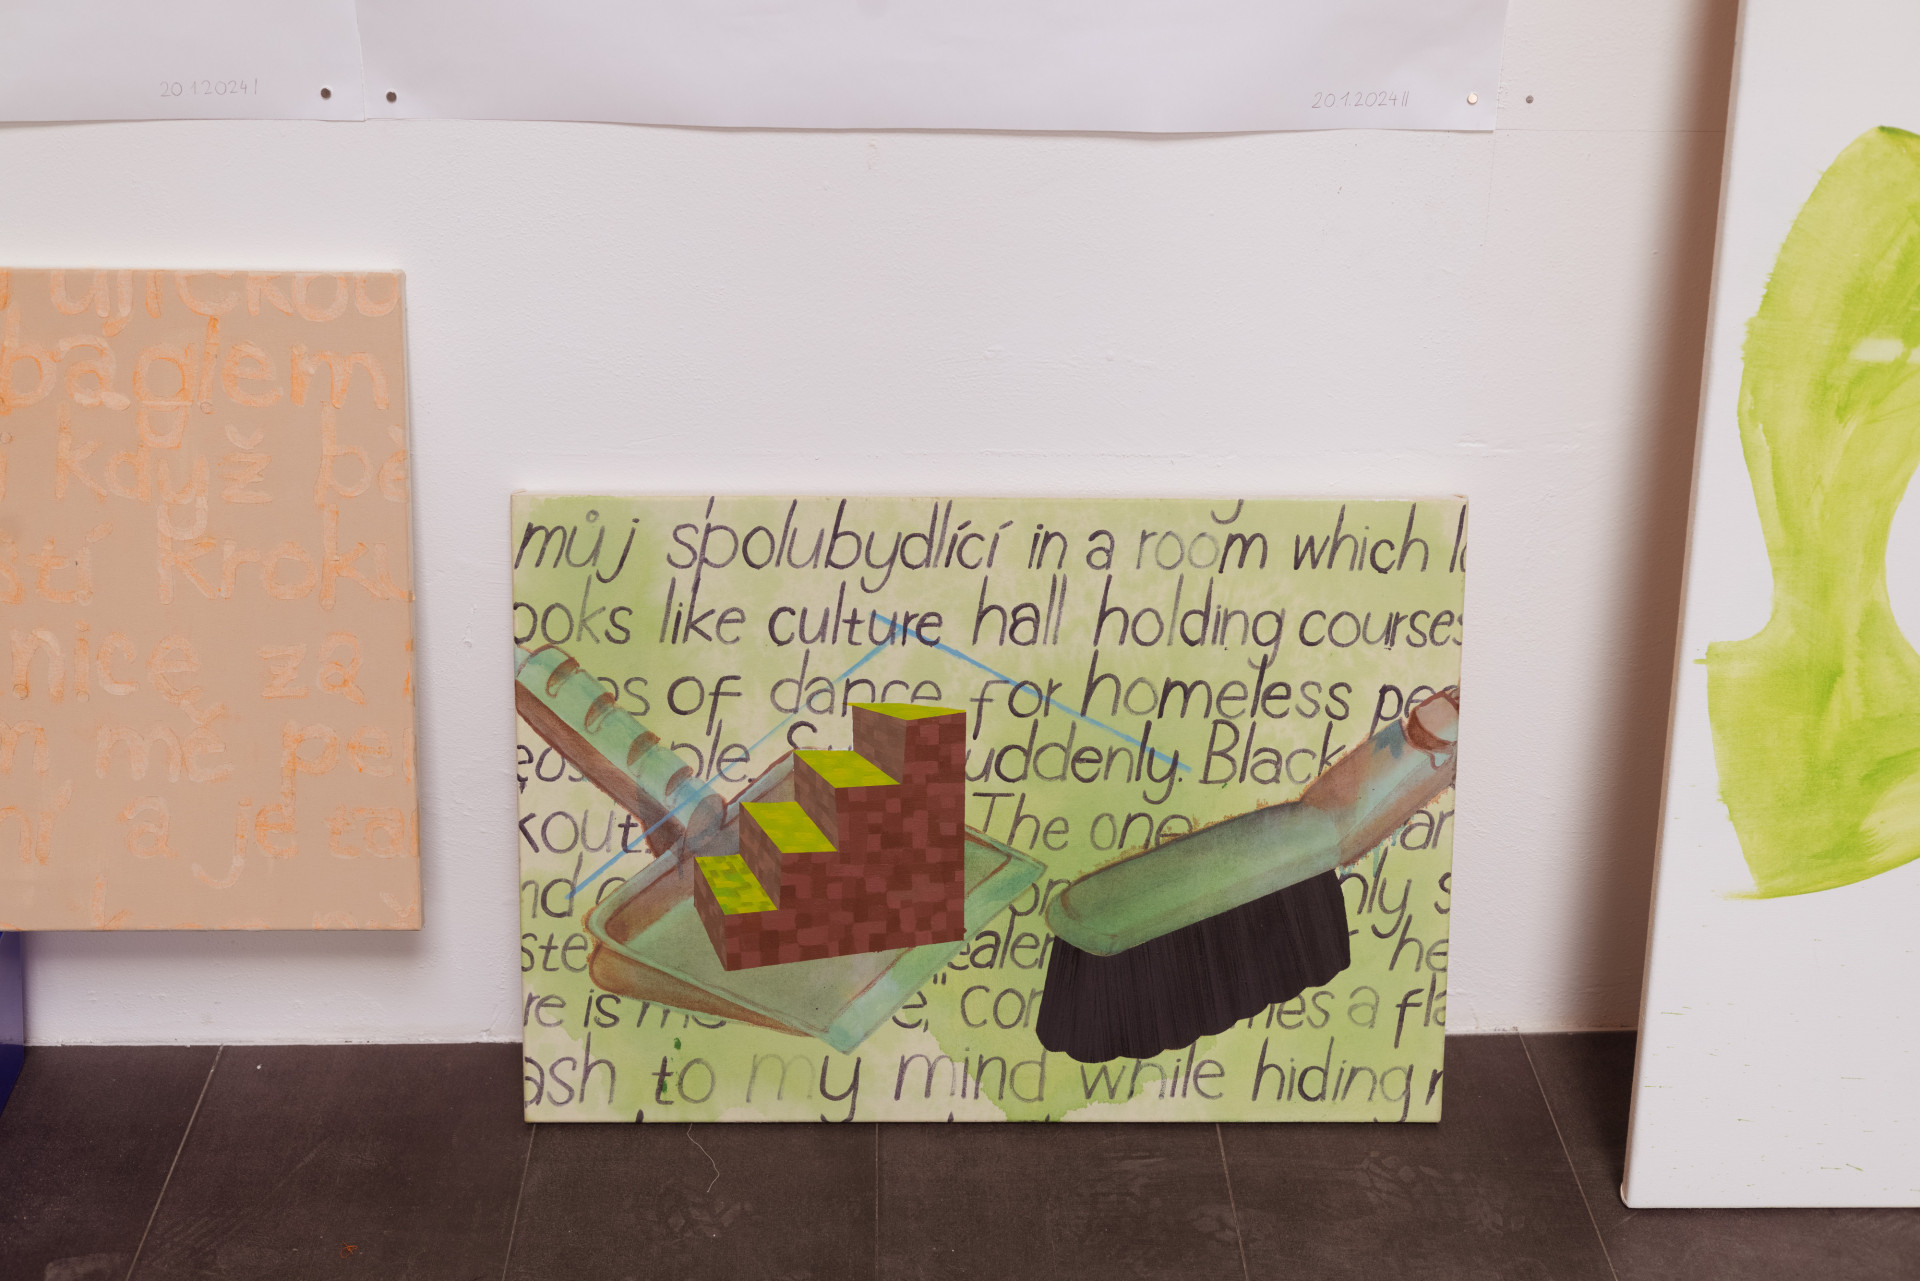 20.1.2024 I
20.1.2024 II
báglem
když
krok
nice za
mě pe
a je ta
můj spolubydlící in a room which l
ooks like culture hall holding courses
of dance for homeless pe
ple. uddenly. Black
kout. The one
nd nly s
ste ealer he
re is e," com es a fla
ash to my mind while hiding